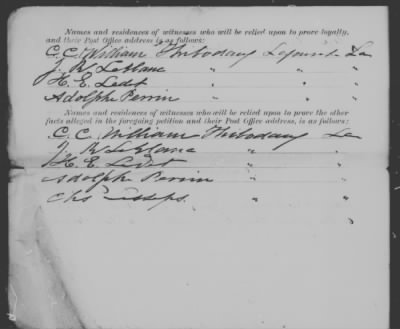 Names and residences of witnesses who will be relied upon to prove loyalty,
and their Post Office address is as follows:
C. C. William Thibodaux Lafourche La
J. R. Leblanc " "
H. E. Ledet " "
Adolphe Perrin " "
Names and residences of witnesses who will be relied upon to prove the other
facts alleged in the foregoing petition and their Post Office address, is as follows:
C. C. William Thibodaux La
J. R. Leblanc " "
H. E. Ledet " "
Adolphe Perrin " "
Chs " "